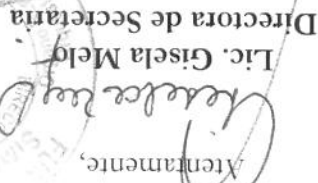 Atentamente,
Lic. Gisela Melo
Directora de Secretaria